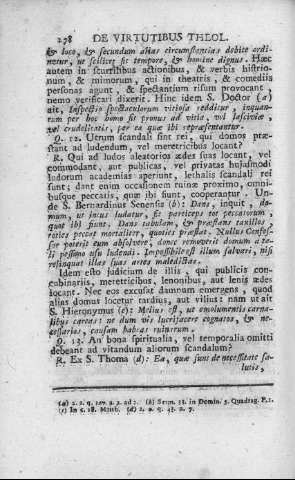 278 DE VIRTUTIBUS THEOL.
& loco, & secundum alias circumstantias debite ordi-
netur, ut scilicet sit tempore, & homine dignus. Hæc
autem in scurrilibus actionibus, & verbis histrio-
num, & mimorum, qui in theatris, & comœdiis
personas agunt, & spectantium risum provocant,
nemo verificari dixerit. Hinc idem S. Doctor (a)
ait, Inspectio spectaculorum vitiosa redditur, inquan-
tum per hoc homo fit pronus ad vitia, vel lasciviæ,
vel crudelitatis, per ea quæ ibi repræsentantur.
Q. 12. Utrum scandali sint rei, qui domos præ-
stant ad ludendum, vel meretricibus locant?
R. Qui ad ludos aleatorios ædes suas locant, vel
commodant, aut publicas, vel privatas hujusmodi
ludorum academias aperiunt, lethalis scandali rei
sunt; dant enim occasionem ruinæ proximam, omni-
busque peccatis, quæ ibi sunt, cooperantur. Un-
de S. Bernardinus Senensis (b): Dans, inquit, do-
mum, ut intus ludatur, fit particeps tot peccatorum,
quot ibi fiunt. Dans tabulam, & præstans taxillos
toties peccat mortaliter, quoties præstat. Nullus Confes-
sor poterit eum absolvere, donec removerit domum a ta-
li pessimo usu ludendi. Impossibile est illum salvari, nisi
relinquat illas suas artes maledictas.
Idem esto judicium de illis, qui publicis con-
cubinariis, meretricibus, lenonibus, aut lenis ædes
locant. Nec eos excusat damnum emergens, quod
alias domus locetur tardius, aut vilius: nam ut ait
S. Hieronymus (c): Melius est, ut emolumentis carna-
libus careas: ne dum vis lucrifacere cognatos, & ne-
cessarios, causam habeas ruinarum.
Q. 13. An bona spiritualia, vel temporalia omitti
debeant ad vitandum aliorum scandalum?
R. Ex S. Thoma (d): Ea, quæ sunt de necessitate sa-
lutis,
(a) 2. 2. q. 167. a. 2. ad 2. (b) Serm. 33. in Domin. 5. Quadrag. P.1.
(c) In c. 18. Matth. (d) 2. 2. q. 43. a. 7.